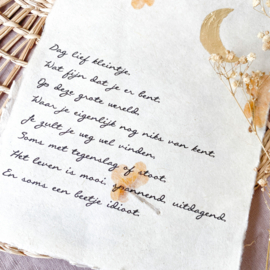 Dag lief kleintje.
Wat fijn dat je er bent.
Op deze grote wereld.
Waar je eigenlijk nog niks van kent.
Je zult je weg wel vinden.
Soms met tegenslag of stoot.
Het leven is mooi, spannend, uitdagend.
En soms een beetje idioot.